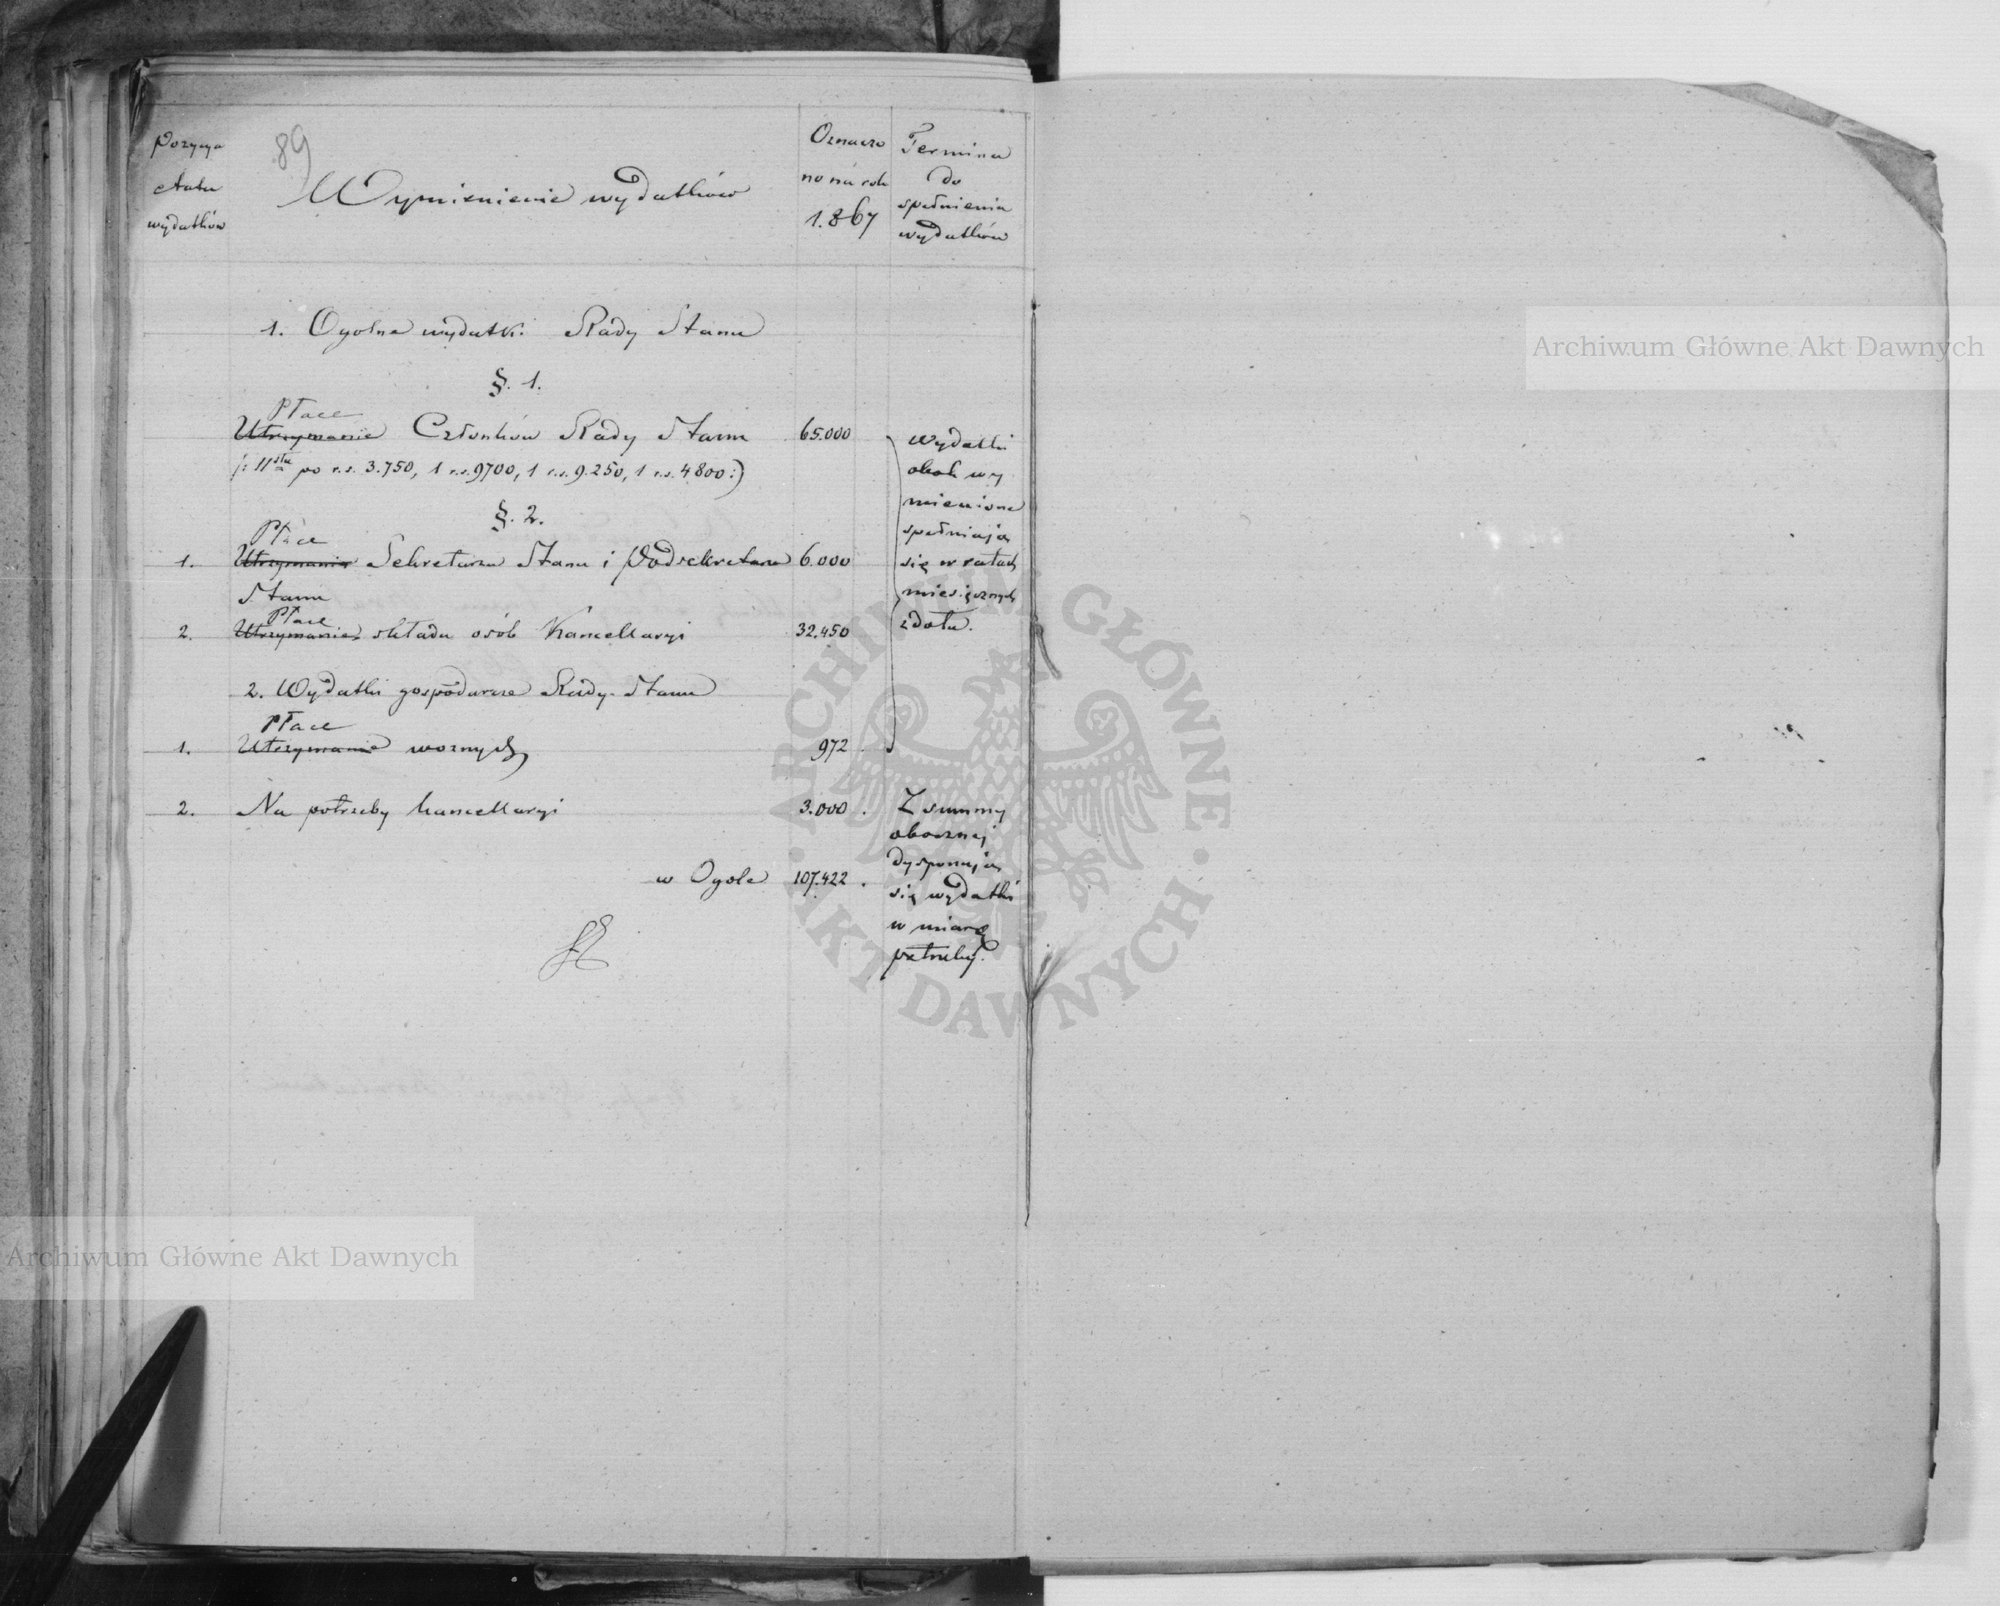 89
Pozycya
etatu
wydatków
Wymienienie wydatków
Oznaczo
no na rok
1.867
Termina
do
spełnienia
wydatków
1. Ogolne wydatki Rady Stanu
§. 1.
Płace
Utrzymanie Członków Rady Stanu 65.000
/: 11stu po r.s. 3.750, 1 r.s. 9700, 1 r.s. 9.250, 1 r.s. 4800:)
§. 2.
Płace
1. Utrzymanie Sekretarza Stanu i Podsekretarza 6.000
Stanu
Płace
2. Utrzymanie składu osób Kancellaryi 32.450
2. Wydatki gospodarcze Rady Stanu
Płace
1. Utrzymanie woznych 972
wydatki
obok wy
mienione
spełniają
się w ratach
miesięcznych
zdołu.
2. Na potrzeby kancellaryi 3.000
w Ogole 107.422
Z summy
obocznej
dysponują
się wydatki
w miarę
potrzeby.
Archiwum Główne Akt Dawnych
Archiwum Główne Akt Dawnych
ARCHIWUM GŁÓWNE
AKT DAWNYCH